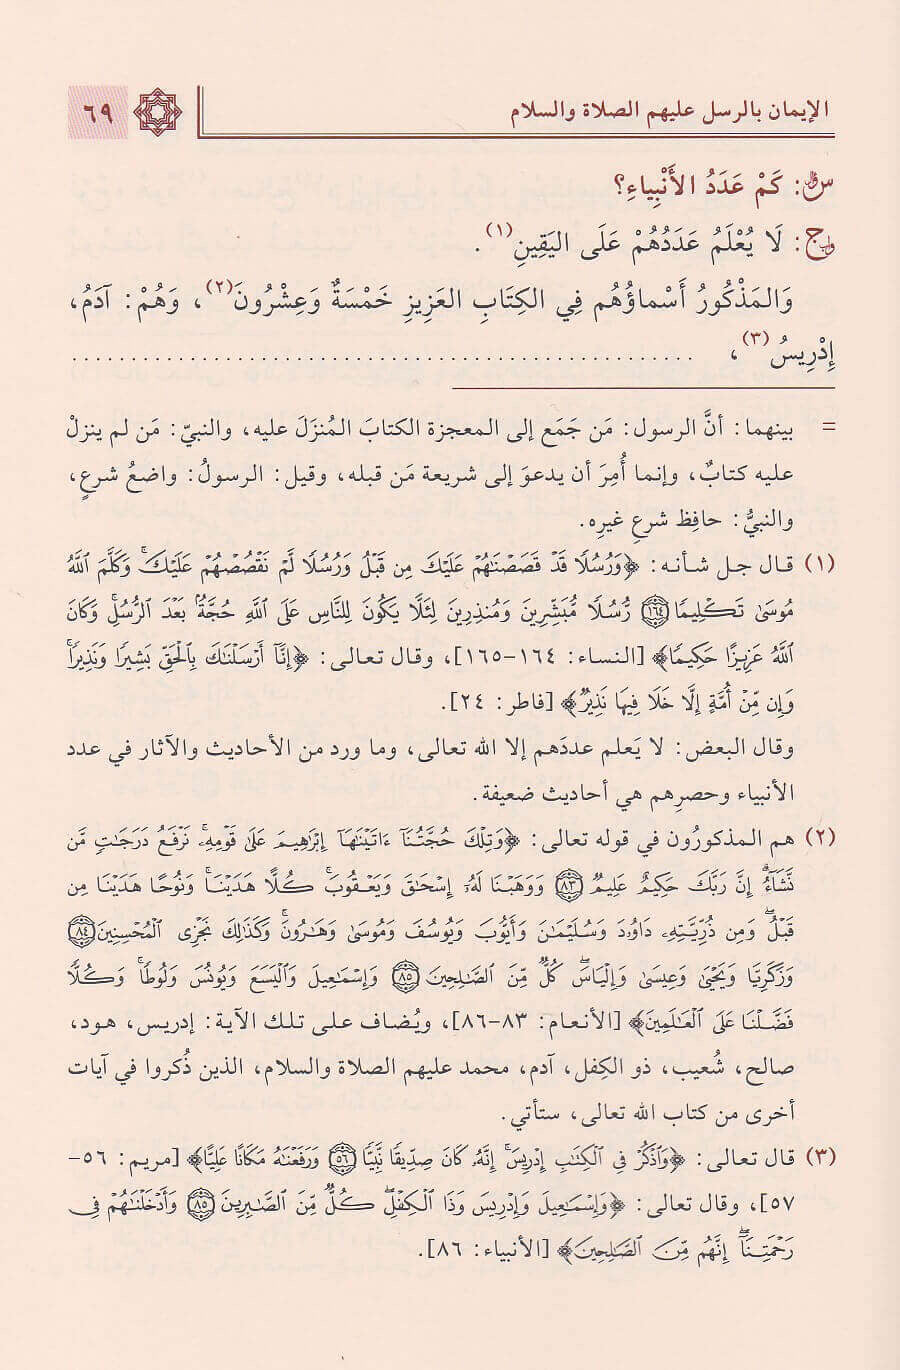 الإيمان بالرسل عليهم الصلاة والسلام ٦٩
س: كَمْ عَدَدُ الأَنْبِيَاءِ؟
ج: لَا يُعْلَمُ عَدَدُهُمْ عَلَى اليَقِينِ(١).
وَالمَذْكُورُ أَسْماؤُهُم فِي الكِتَابِ العَزِيزِ خَمْسَةٌ وَعِشْرُونَ(٢)، وَهُمْ: آدَمُ،
إِدْرِيسُ(٣)، ....................................................
= بينهما: أنَّ الرسول: مَن جَمَع إلى المعجزة الكتابَ المُنزَلَ عليه، والنبيّ: مَن لم ينزلْ
عليه كتابٌ، وإنما أُمِرَ أن يدعوَ إلى شريعة مَن قبله، وقيل: الرسولُ: واضعُ شرعٍ،
والنبيُّ: حافِظ شرعِ غيرِه.
(١) قال جل شأنه: ﴿وَرُسُلًا قَدْ قَصَصْنَٰهُمْ عَلَيْكَ مِن قَبْلُ وَرُسُلًا لَّمْ نَقْصُصْهُمْ عَلَيْكَ ۚ وَكَلَّمَ ٱللَّهُ
مُوسَىٰ تَكْلِيمًا ١٦٤ رُّسُلًا مُّبَشِّرِينَ وَمُنذِرِينَ لِئَلَّا يَكُونَ لِلنَّاسِ عَلَى ٱللَّهِ حُجَّةٌۢ بَعْدَ ٱلرُّسُلِ ۚ وَكَانَ
ٱللَّهُ عَزِيزًا حَكِيمًا﴾ [النساء: ١٦٤-١٦٥]، وقال تعالى: ﴿إِنَّآ أَرْسَلْنَٰكَ بِٱلْحَقِّ بَشِيرًا وَنَذِيرًا ۚ
وَإِن مِّنْ أُمَّةٍ إِلَّا خَلَا فِيهَا نَذِيرٌ﴾ [فاطر: ٢٤].
وقال البعض: لا يَعلم عددَهم إلا الله تعالى، وما ورد من الأحاديث والآثار في عدد
الأنبياء وحصرِهم هي أحاديث ضعيفة.
(٢) هم المذكورُون في قوله تعالى: ﴿وَتِلْكَ حُجَّتُنَآ ءَاتَيْنَٰهَآ إِبْرَٰهِيمَ عَلَىٰ قَوْمِهِۦ ۚ نَرْفَعُ دَرَجَٰتٍ مَّن
نَّشَآءُ ۗ إِنَّ رَبَّكَ حَكِيمٌ عَلِيمٌ ٨٣ وَوَهَبْنَا لَهُۥٓ إِسْحَٰقَ وَيَعْقُوبَ ۚ كُلًّا هَدَيْنَا ۚ وَنُوحًا هَدَيْنَا مِن
قَبْلُ ۖ وَمِن ذُرِّيَّتِهِۦ دَاوُۥدَ وَسُلَيْمَٰنَ وَأَيُّوبَ وَيُوسُفَ وَمُوسَىٰ وَهَٰرُونَ ۚ وَكَذَٰلِكَ نَجْزِى ٱلْمُحْسِنِينَ ٨٤
وَزَكَرِيَّا وَيَحْيَىٰ وَعِيسَىٰ وَإِلْيَاسَ ۖ كُلٌّ مِّنَ ٱلصَّٰلِحِينَ ٨٥ وَإِسْمَٰعِيلَ وَٱلْيَسَعَ وَيُونُسَ وَلُوطًا ۚ وَكُلًّا
فَضَّلْنَا عَلَى ٱلْعَٰلَمِينَ﴾ [الأنعام: ٨٣-٨٦]، ويُضاف على تلك الآية: إدريس، هود،
صالح، شُعيب، ذو الكِفل، آدم، محمد عليهم الصلاة والسلام، الذين ذُكروا في آيات
أخرى من كتاب الله تعالى، ستأتي.
(٣) قال تعالى: ﴿وَٱذْكُرْ فِى ٱلْكِتَٰبِ إِدْرِيسَ ۚ إِنَّهُۥ كَانَ صِدِّيقًا نَّبِيًّا ٥٦ وَرَفَعْنَٰهُ مَكَانًا عَلِيًّا﴾ [مريم: ٥٦-
٥٧]، وقال تعالى: ﴿وَإِسْمَٰعِيلَ وَإِدْرِيسَ وَذَا ٱلْكِفْلِ ۖ كُلٌّ مِّنَ ٱلصَّٰبِرِينَ ٨٥ وَأَدْخَلْنَٰهُمْ فِى
رَحْمَتِنَآ ۖ إِنَّهُم مِّنَ ٱلصَّٰلِحِينَ﴾ [الأنبياء: ٨٦].